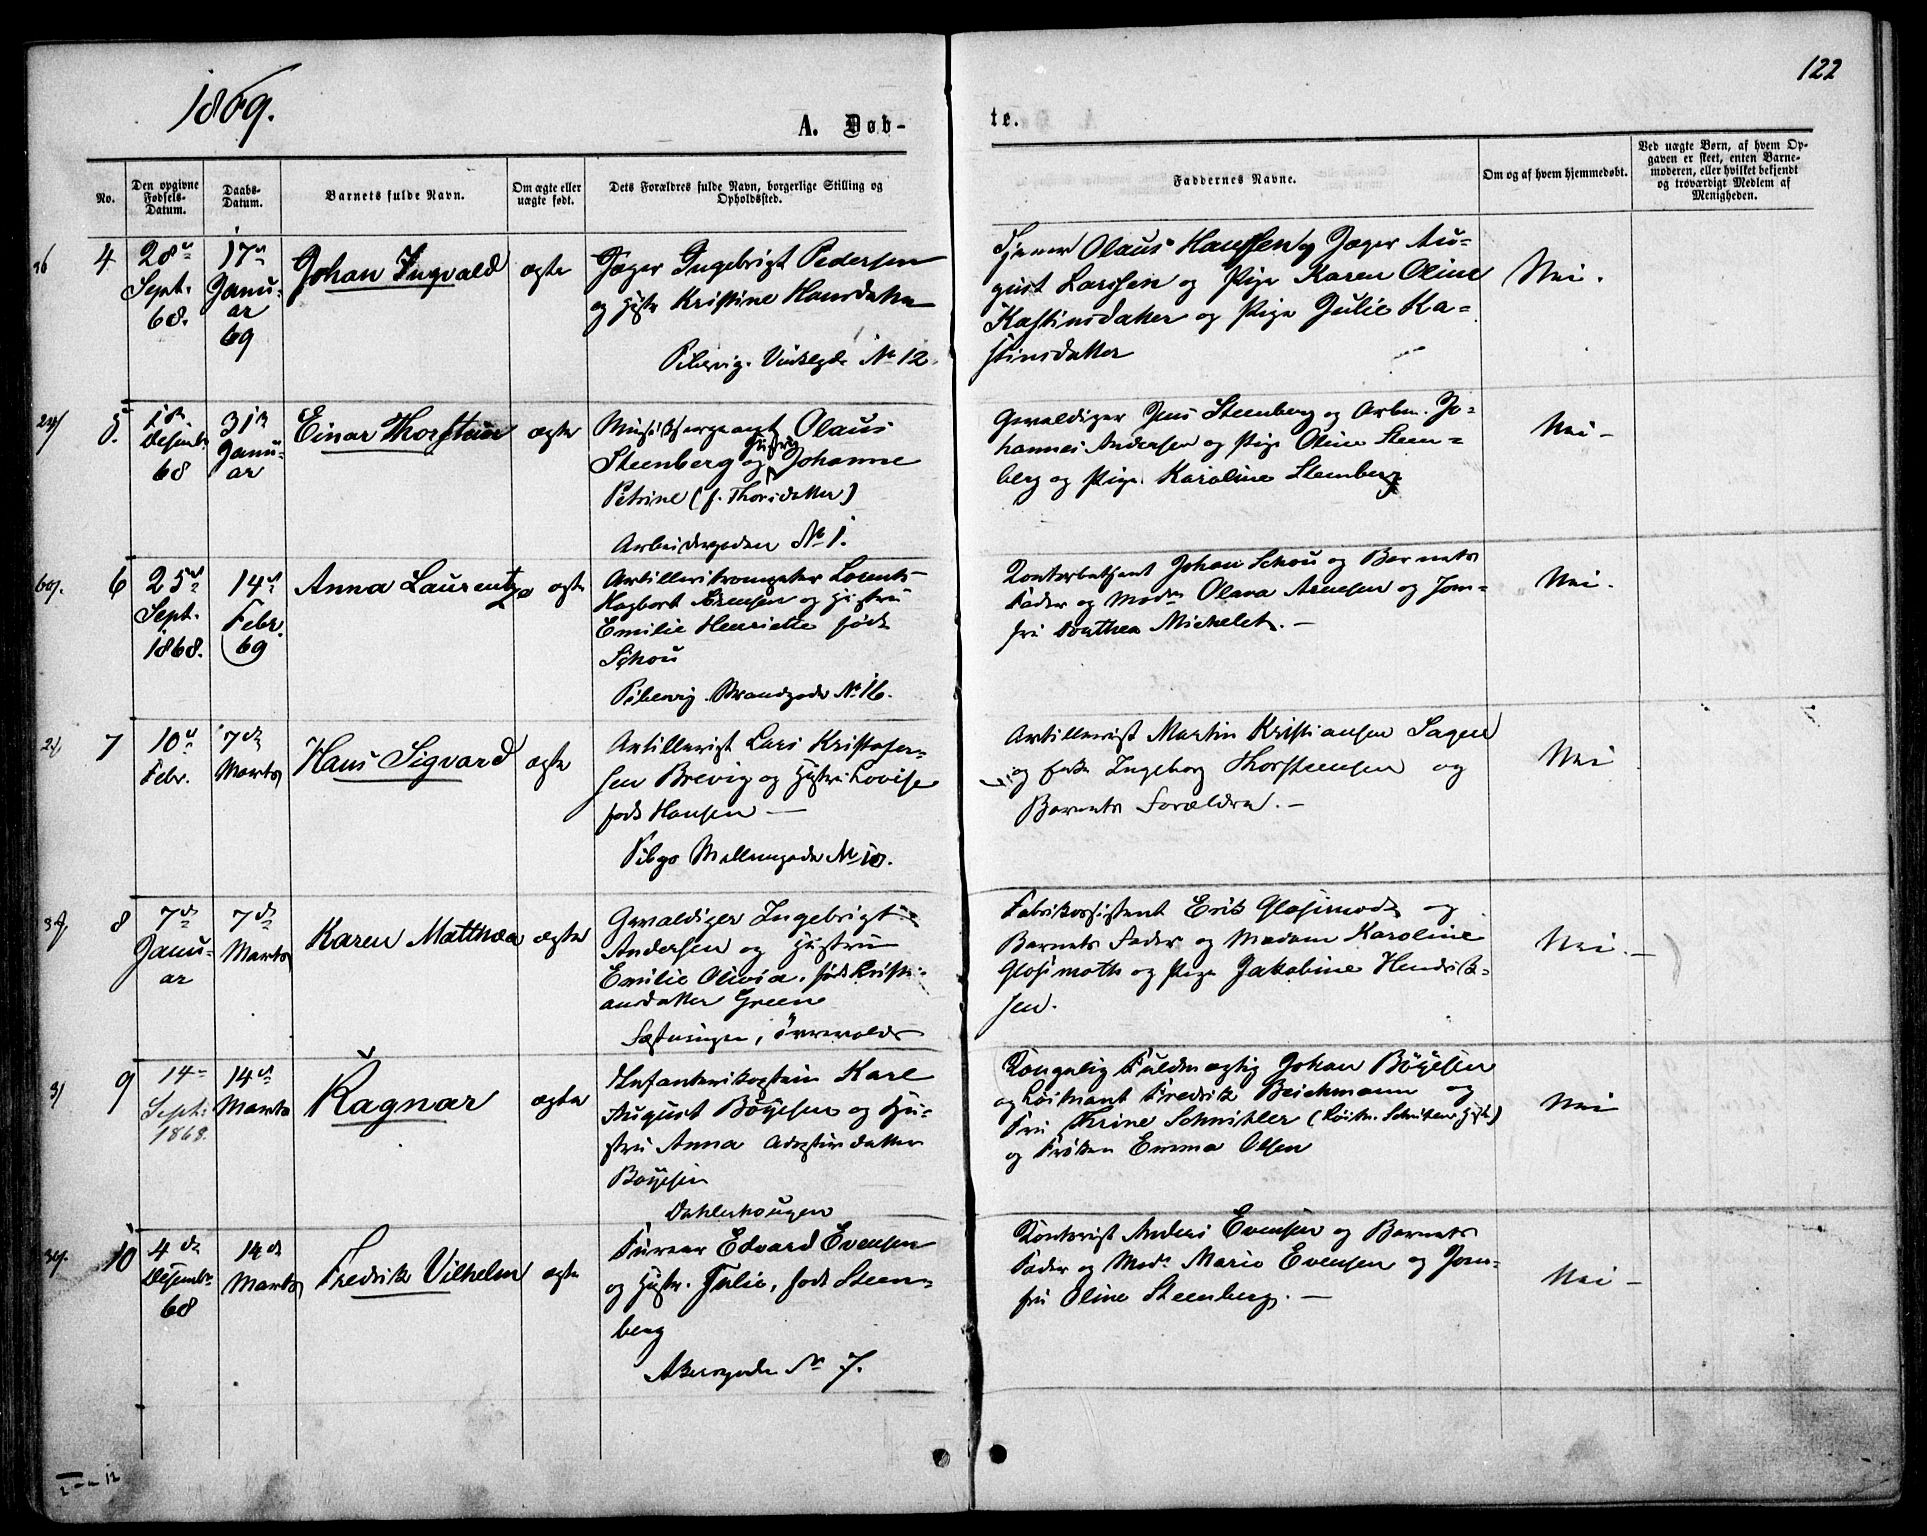 1869.
122
A. Døb-
te.
No.
Den opgivne Fødsels-Datum.
Daabs-Datum.
Barnets fulde Navn.
Om ægte eller uægte født.
Dets Forældres fulde Navn, borgerlige Stilling og Opholdssted.
Faddernes Navne.
Om og af hvem hjemmedøbt.
Ved uægte Børn, af hvem Opgaven er skeet, enten Barnemoderen, eller hvilket bekjendt og troværdigt Medlem af Menigheden.
4
28de Sept. 68.
17de Januar 69
Johan Ingvald
ægte
Jæger Ingebrigt Pedersen
og Hustr Kristine Hansdatter
Pibervig. No 12.
Olaus Hansen og Jæger Au-
gust Larssen og Pige Karen Oline
Kastinsdatter og Pige Julie Ka-
stinsdatter
Nei.
5.
1ste Desembr 68
31te Januar
Einar Thorstein
ægte
Musiksergeant Olaus
Steenberg og Hustru Johanne
Petrine (f. Thorsdatter)
Arbeidergaden No 1.
Gevaldiger Jens Steenberg og Arbm. Jo-
hannes Andersen og Pige Oline Steen-
berg og Pige Karoline Steenberg
Nei -
6
25de Sept. 1868.
14de Febr. 69
Anna Laurentza
ægte
Artilleritrompeter Lorents
Hagbart Arensen og Hustru
Emilie Henriette født
Schou
Pibervig. Brandgade No 16.
Kontorbetjent Johan Schou og Barnets
Fader og Madm Olava Arensen og Jom-
fru Dorthea Michelet. -
Nei.
7
10de Febr.
7de Marts
Hans Sigvard
ægte
Artillerist Lars Kristofer-
sen Brevig og Hustru Lovise
født Hansen -
Pibgo Mellemgade No 10.
Artillerist Martin Kristiansen Sagen
og Enke Ingeborg Thorstensen og
Barnets Forældre. -
Nei
8
7de Januar
7de Marts
Karen Mathea
ægte
Gevaldiger Ingebrigt
Andersen og Hustru
Emilie Olivia, født Kristi-
ansdatter Greene
Fæstningen,
Fabrikassistent Erik Glosimodt og
Barnets Fader og Madam Karoline
Glosimoth og Pige Jakobine Hendrik-
sen.
Nei. -
9
14 Sept: 1868.
14de Marts
Ragnar
ægte
Infanterikaptein Karl
August Böyesen og Hu-
stru Anna datter
Böyesen
Dahlerhougen
Kongelig Fuldmægtig Johan Böyesen
og Löitnant Fredrik Beichmann og
Fru Trine Schnitler (Löitn. Schnitlers Hust.)
og Frøken Emma Olsen
Nei
10
4de Desembr 68
14de Marts
Fredrik Vilhelm
ægte
Furer Edvard Evensen
og Hustr. Julie, født Steen-
berg
Akersgade No 7.
Kontorist Anders Evensen og Barnets
Fader og Madm Marie Evensen og Jom-
fru Oline Steenberg. -
Nei -